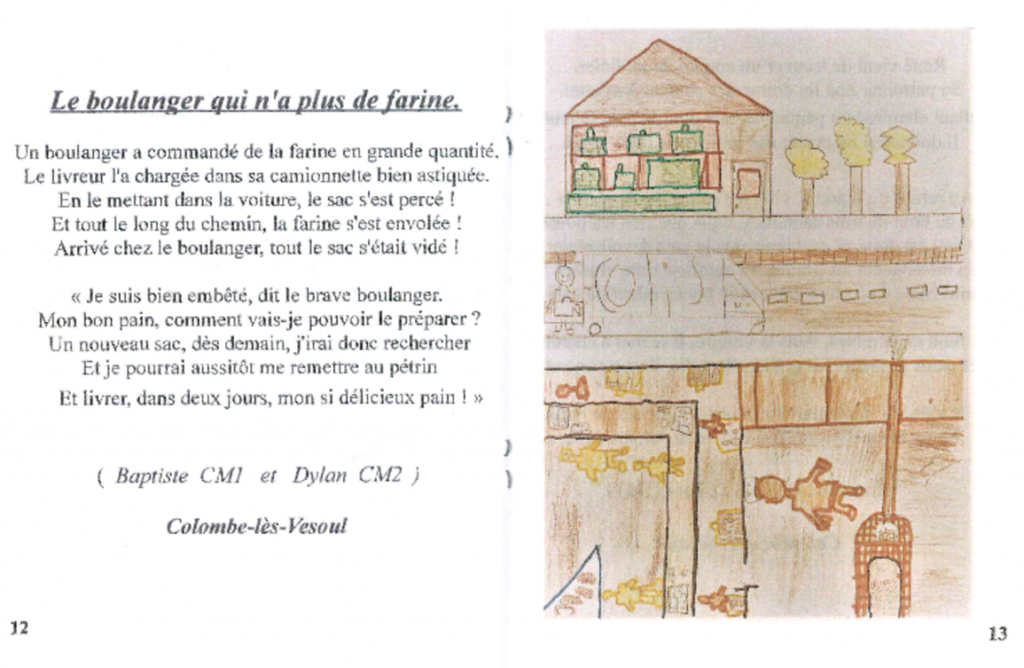 Le boulanger qui n'a plus de farine.
Un boulanger a commandé de la farine en grande quantité.
Le livreur l'a chargée dans sa camionnette bien astiquée.
En le mettant dans la voiture, le sac s'est percé !
Et tout le long du chemin, la farine s'est envolée !
Arrivé chez le boulanger, tout le sac s'était vidé !
« Je suis bien embêté, dit le brave boulanger.
Mon bon pain, comment vais-je pouvoir le préparer ?
Un nouveau sac, dès demain, j'irai donc rechercher
Et je pourrai aussitôt me remettre au pétrin
Et livrer, dans deux jours, mon si délicieux pain ! »
( Baptiste CM1 et Dylan CM2 )
Colombe-lès-Vesoul
12
13